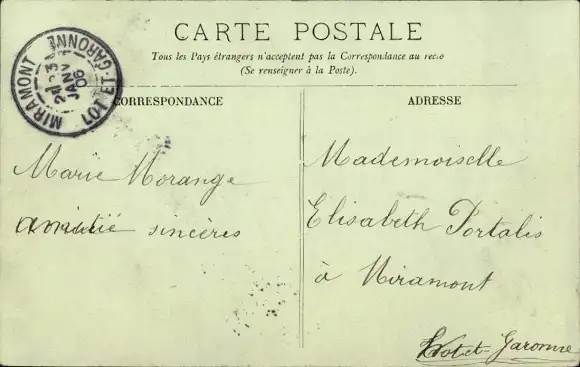 CARTE POSTALE
Tous les Pays étrangers n'acceptent pas la Correspondance au recto
(Se renseigner à la Poste).
MIRAMONT LOT-ET-GARONNE
JANV
06
CORRESPONDANCE
Marie Morange
amitié sincères
ADRESSE
Mademoiselle
Elisabeth Portalis
à Miramont
Lot et-Garonne